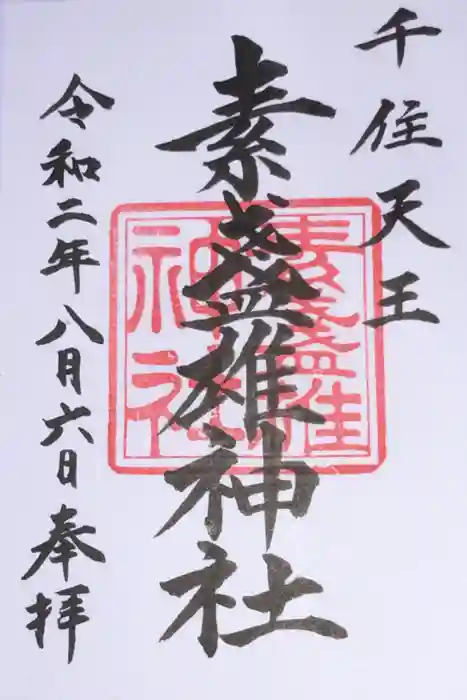 千住天王
素盞雄神社
令和二年八月六日奉拝
素盞雄
神社